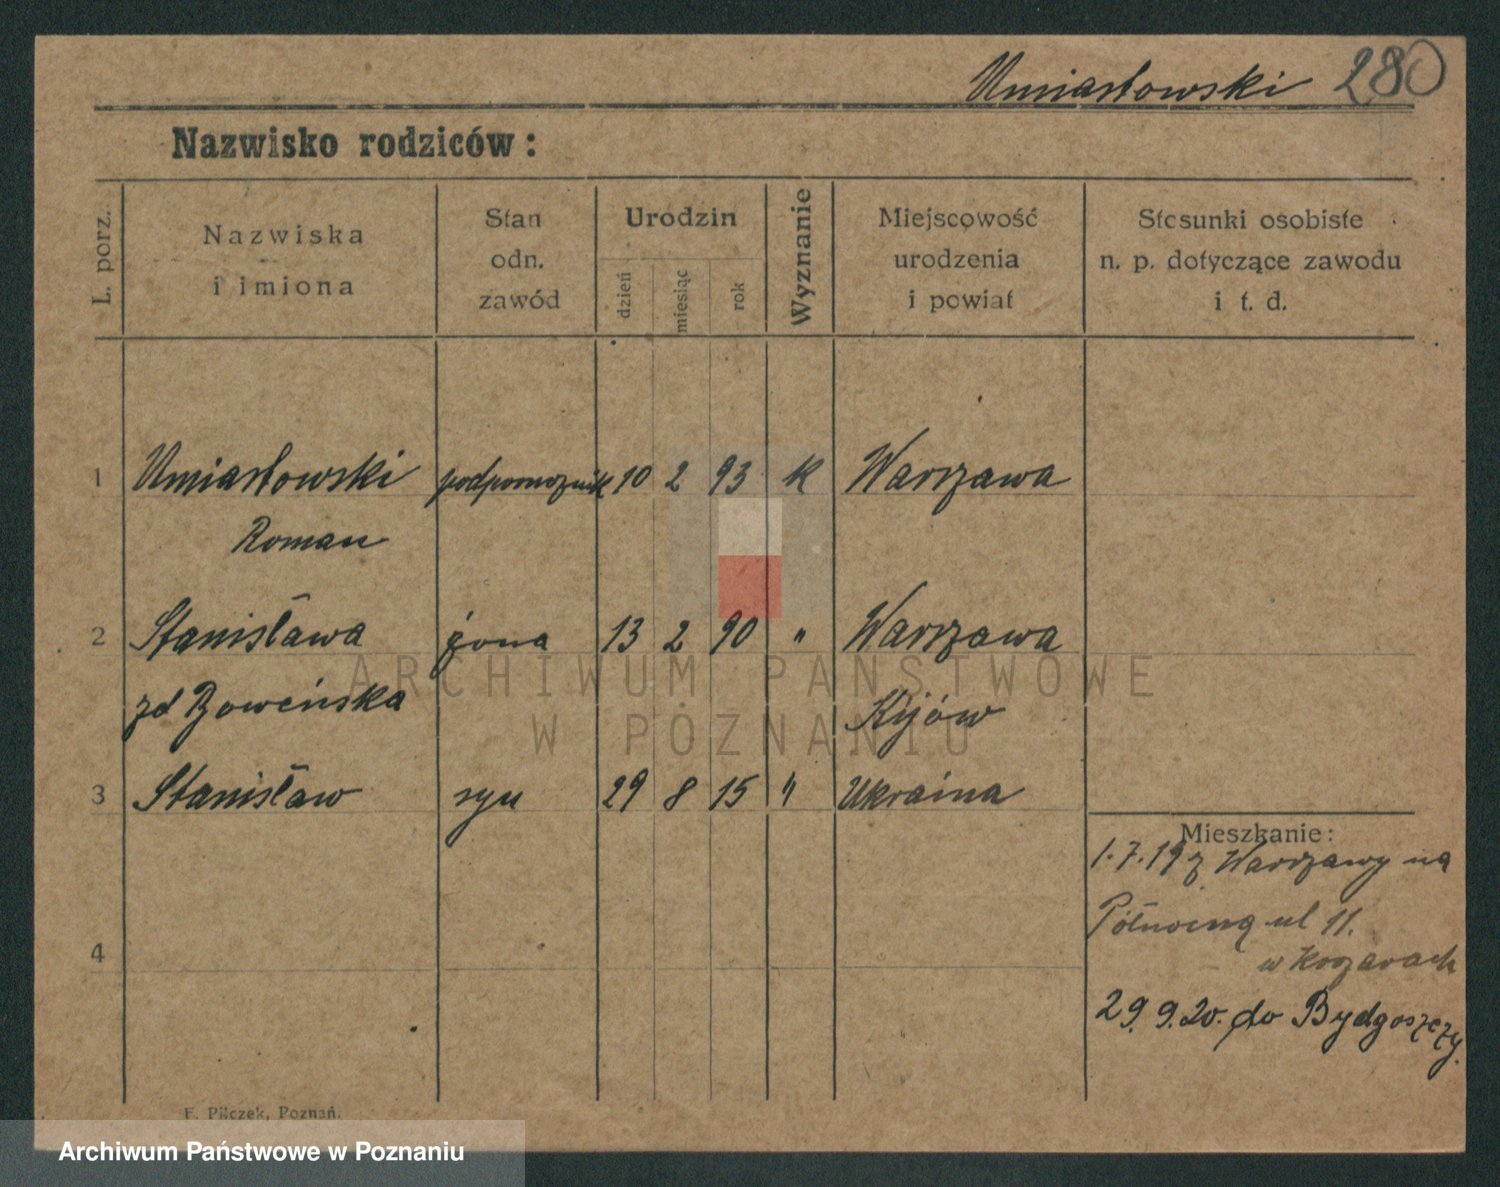 Umiastowski 280
Nazwisko rodziców:
L. porz.
Nazwiska
i imiona
Stan
odn.
zawód
Urodzin
dzień
miesiąc
rok
Wyznanie
Miejscowość
urodzenia
i powiat
Stosunki osobiste
n. p. dotyczące zawodu
i t. d.
1 Umiastowski podporucznik 10 2 93 k Warszawa
Roman
2 Stanisława żona 13 2 90 " Warszawa
zd
Kijów
3 Stanisław syn 29 8 15 " Ukraina
Mieszkanie:
1.7.19 z Warszawy na
Północną ul 11.
w koszarach
29.9.20. do Bydgoszczy.
4
F. Pilczek, Poznań.
ARCHIWUM PAŃSTWOWE
W POZNANIU
Archiwum Państwowe w Poznaniu